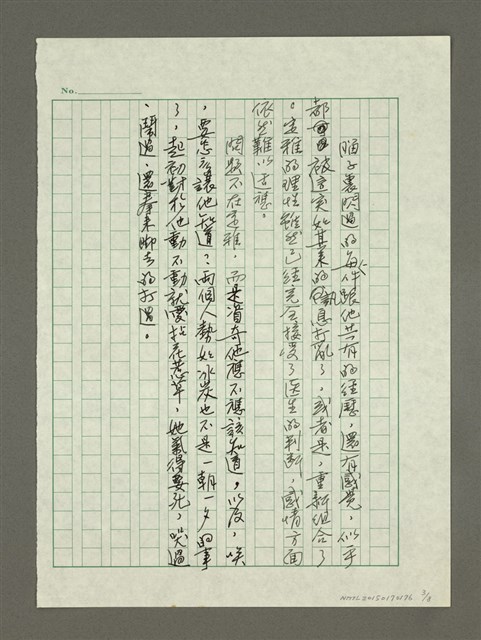 No.
腦子裏閃過的每件跟他共有的經歷，還有感覺，似乎
都被這突如其來的訊息打亂了，或者是，重新組合了
。定雅的理性雖然已經完全接受了医生的判断，感情方面
依然難以適應。
問題不在定雅，而是道奇他應不應該知道，以及，唉
，要怎麼讓他知道？兩個人勢如冰炭也不是一朝一夕的事
了，起初對於他動不動就愛拈花惹草，她氣得要死，哭過
、鬧過，還拳來脚去的打過。
NMTL20150170176 3/8